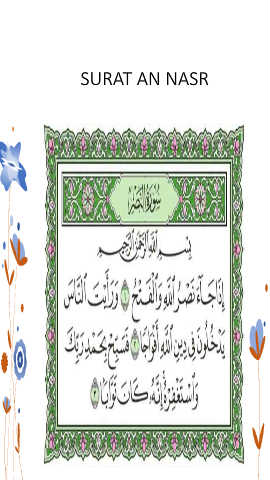 SURAT AN NASR
سُورَةُ النَّصْرِ
بِسْمِ اللَّهِ الرَّحْمَٰنِ الرَّحِيمِ
إِذَا جَاءَ نَصْرُ اللَّهِ وَالْفَتْحُ ١ وَرَأَيْتَ النَّاسَ
يَدْخُلُونَ فِي دِينِ اللَّهِ أَفْوَاجًا ٢ فَسَبِّحْ بِحَمْدِ رَبِّكَ
وَاسْتَغْفِرْهُ إِنَّهُ كَانَ تَوَّابًا ٣